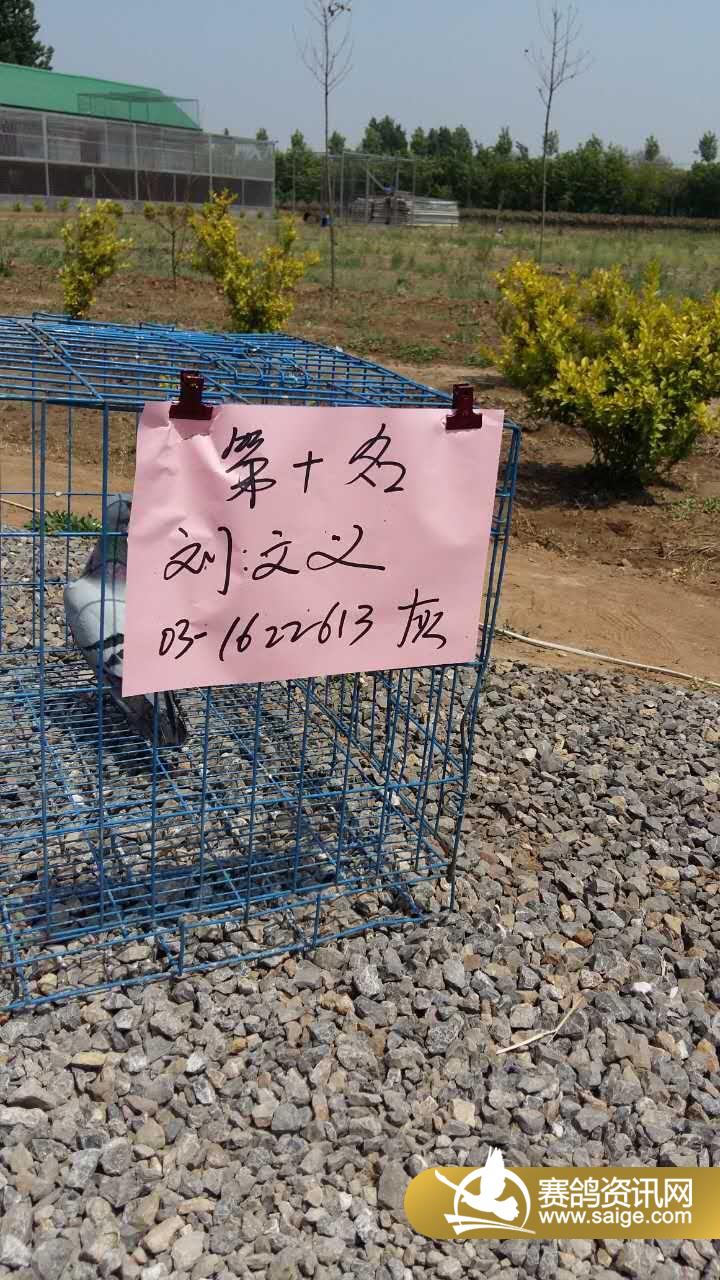 第十名
刘:文义
03-1622613 灰
赛鸽资讯网
www.saige.com